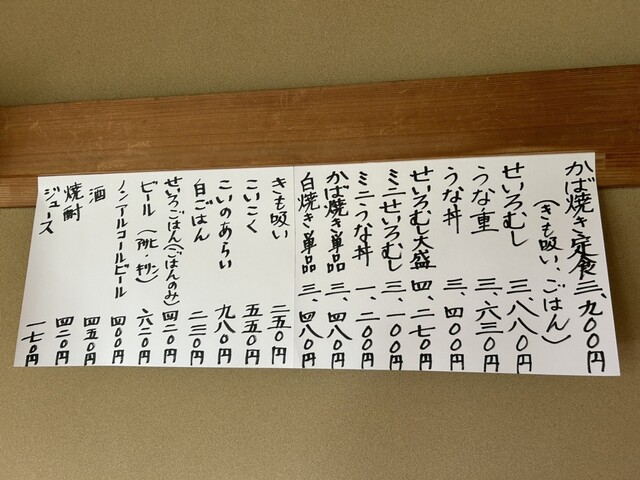 かば焼き定食 三、九〇〇円
(きも吸い、ごはん)
せいろむし 三、八八〇円
うな重 三、六三〇円
うな丼 三、四〇〇円
せいろむし大盛 四、二七〇円
ミニせいろむし 三、一〇〇円
ミニうな丼 一、二〇〇円
かば焼き単品 三、四八〇円
白焼き単品 三、四八〇円
きも吸い 二五〇円
こいこく 五五〇円
こいのあらい 九八〇円
白ごはん 二三〇円
せいろごはん(ごはんのみ) 四二〇円
ビール (アサヒ・キリン) 六三〇円
ノンアルコールビール 四〇〇円
酒 四五〇円
焼酎 四二〇円
ジュース 一七〇円